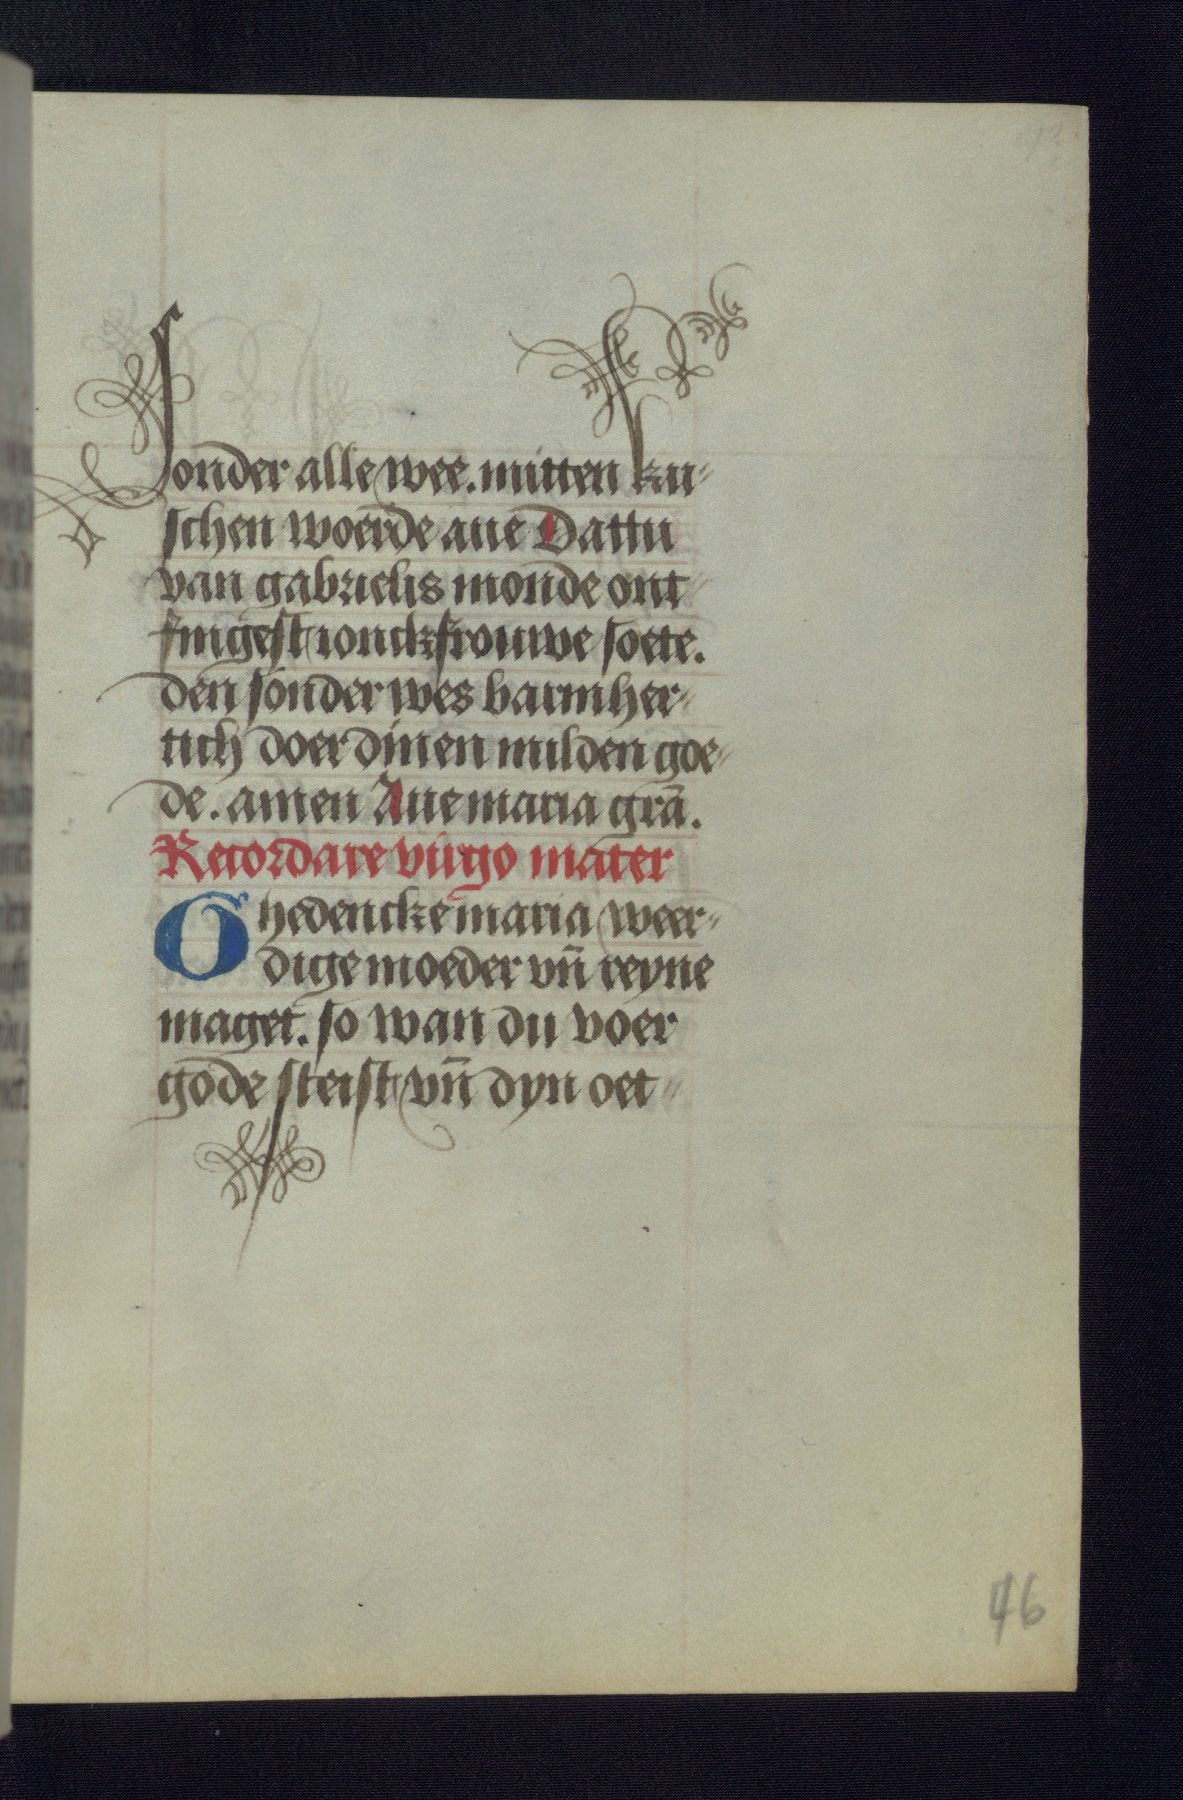 Sonder alle wee. mitten ku⸗
schen woerde aue Dattu
van gabrielis monde ont⸗
fingest ionckfrouwe soete.
den sonder wes barmher⸗
tich doer dinen milden goe⸗
de. amen Aue maria grã.
Recordare virgo mater
Ghedencke maria weer⸗
dige moeder vñ reyne
maget. so wan du voer
gode steist vñ dyn oet⸗
46